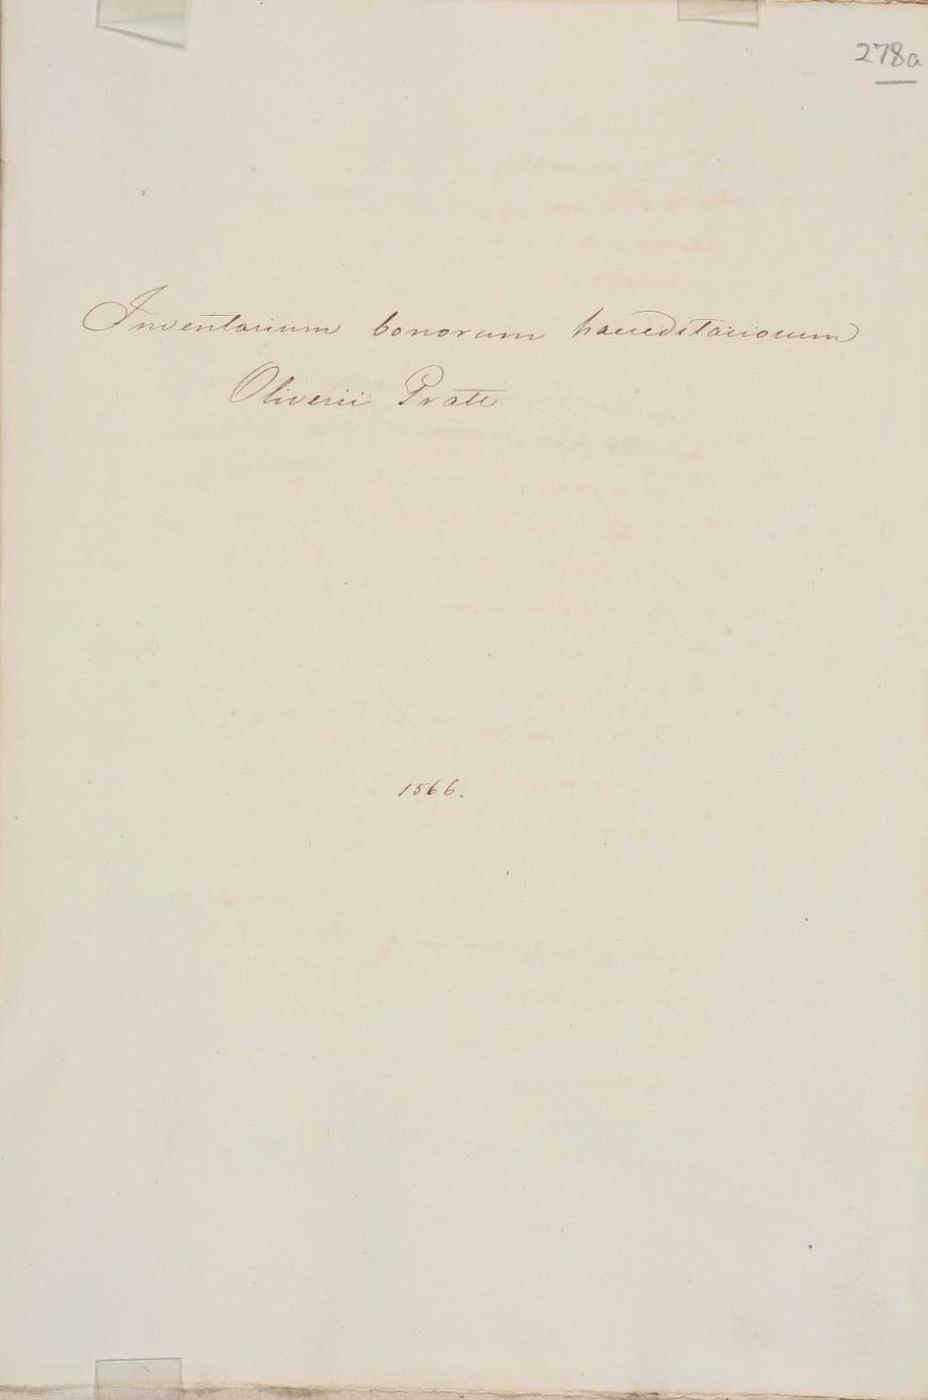 278a
Inventarium bonorum haereditariorum
Oliverii Pratt
1566.